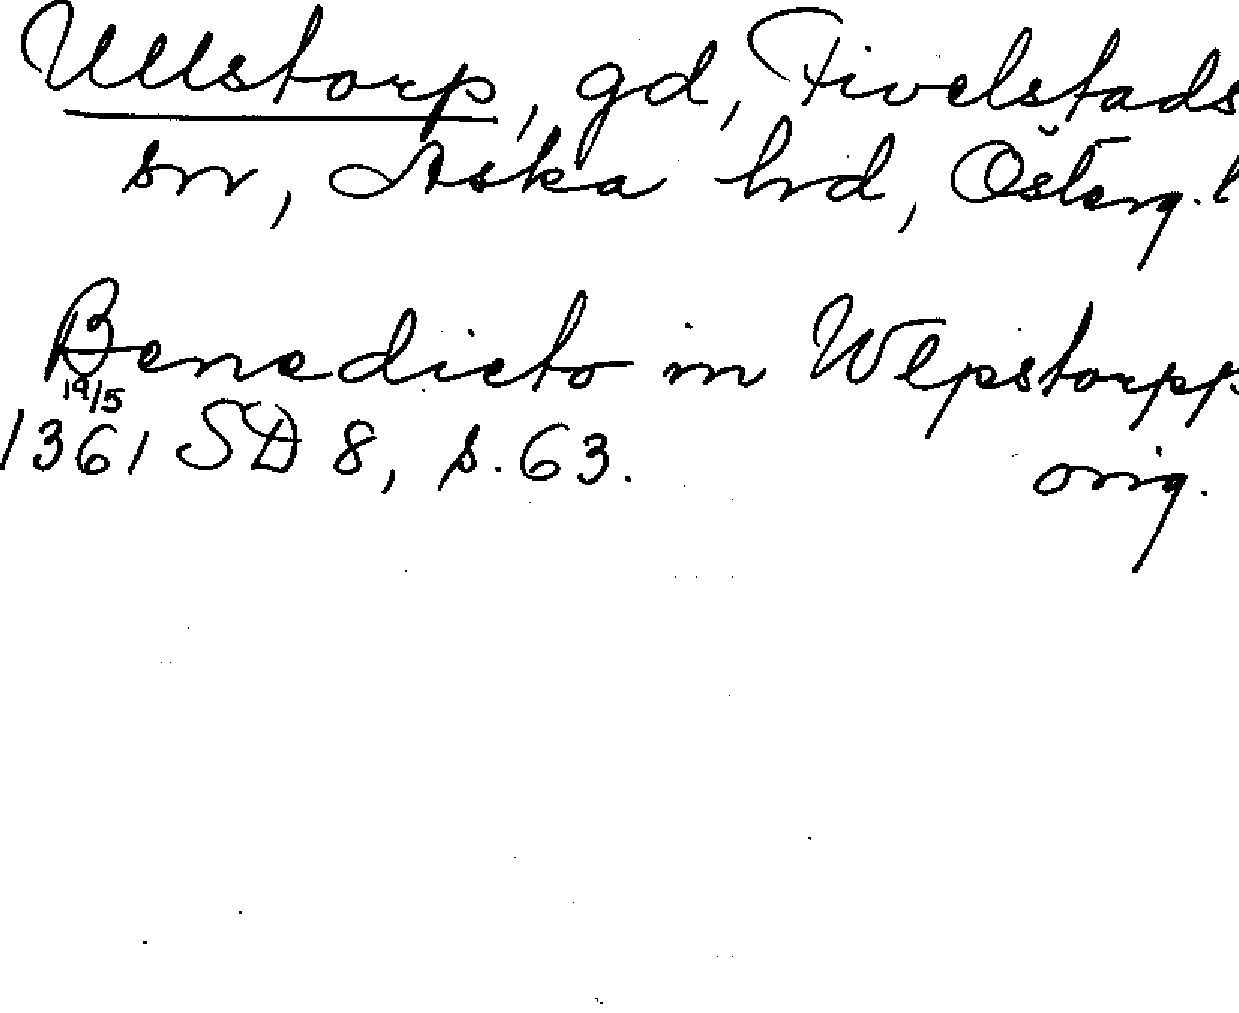 Ullstorp, gd, Fivelstads
sn, Aska hd, Österg. l
Benedicto in Wlpstorpp
19/5
1361 SD 8, s. 63.
orig.